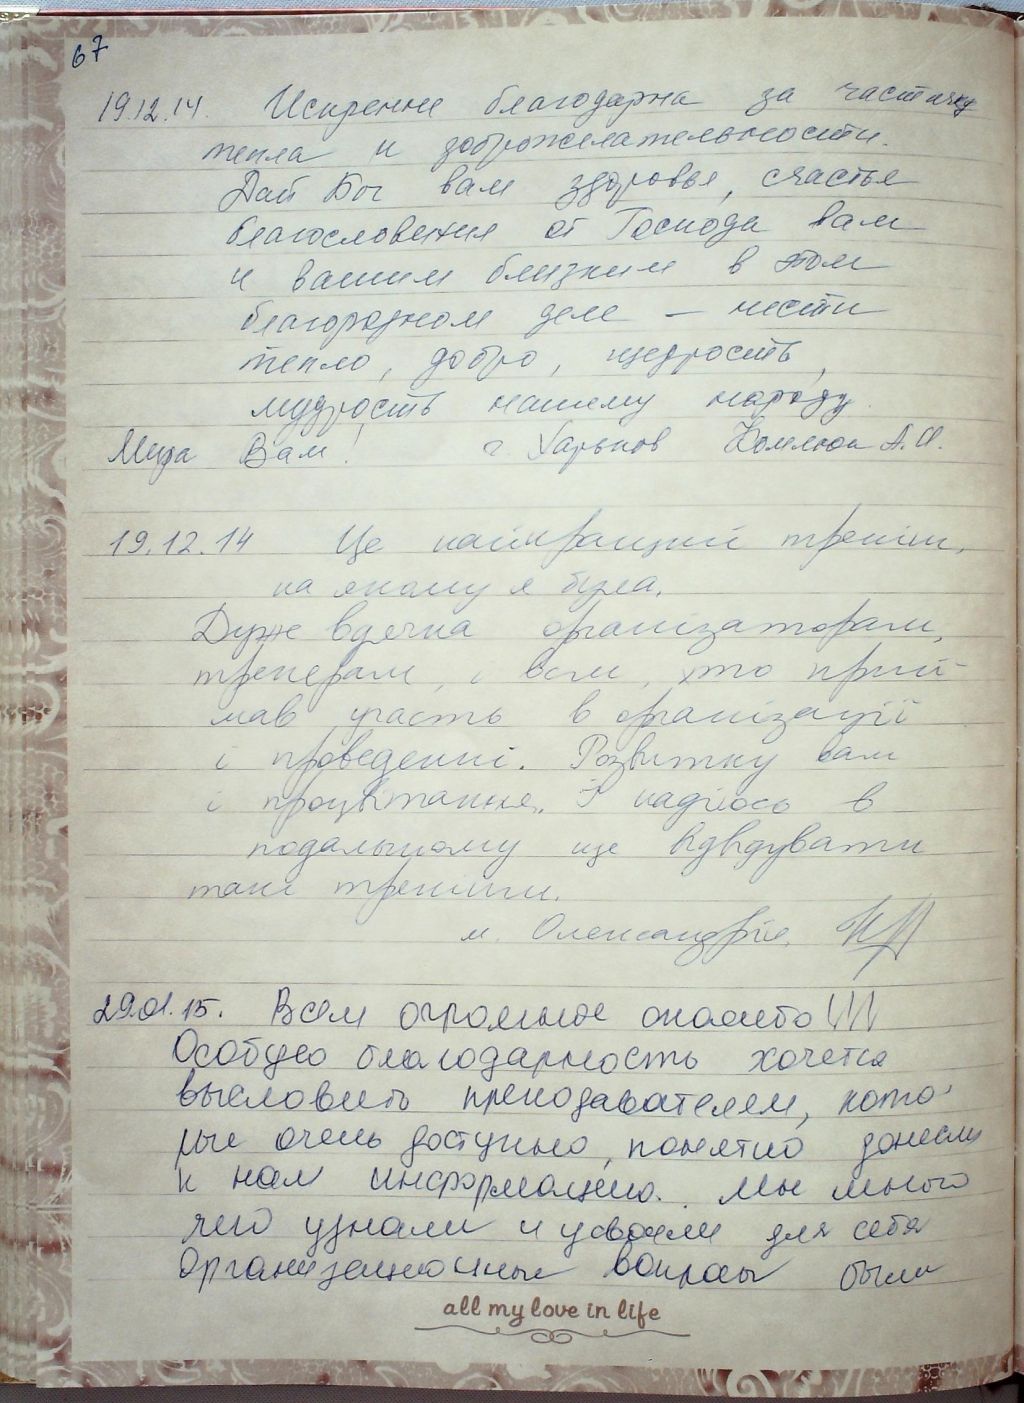 67
19.12.14. Искренне благодарна за частичку
тепла и доброжелательности.
Дай Бог вам здоровья, счастья
благословения от Господа вам
и вашим близким в этом
благородном деле – нести
тепло, добро, щедрость,
мудрость нашему народу.
Мира Вам! г. Харьков А.И.
19.12.14 Це найкращий тренінг,
на якому я була.
Дуже вдячна організаторам,
тренерам, і всім, хто прий-
мав участь в організації
і проведенні. Розвитку вам
і процвітання. І надіюсь в
подальшому ще відвідувати
такі тренінги.
м. Олександрія.
29.01.15. Всем огромное спасибо!!!
Особую благодарность хочется
высловить преподавателем, кото-
рые очень доступно, понятно донесли
к нам информацию. Мы много
чего узнали и усвоели для себя
Организационные вопросы были
all my love in life